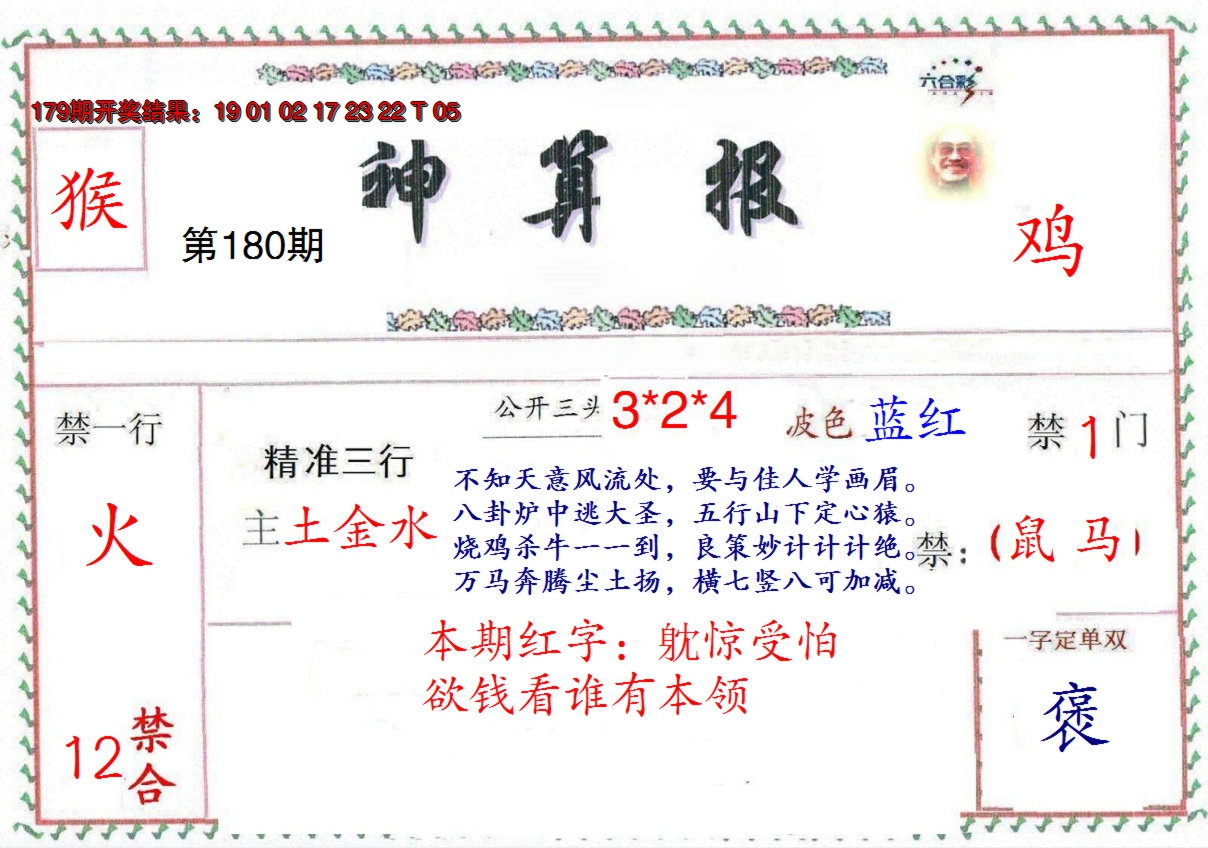 六合彩
179期开奖结果：19 01 02 17 23 22 T 05
神算报
猴
第180期
鸡
公开三头 3*2*4
波色 蓝红
禁1门
禁一行
火
精准三行
主土金水
不知天意风流处，要与佳人学画眉。
八卦炉中逃大圣，五行山下定心猿。
烧鸡杀牛一一到，良策妙计计计绝。
万马奔腾尘土扬，横七竖八可加减。
禁：（鼠 马）
本期红字：躭惊受怕
欲钱看谁有本领
一字定单双
褒
12禁合